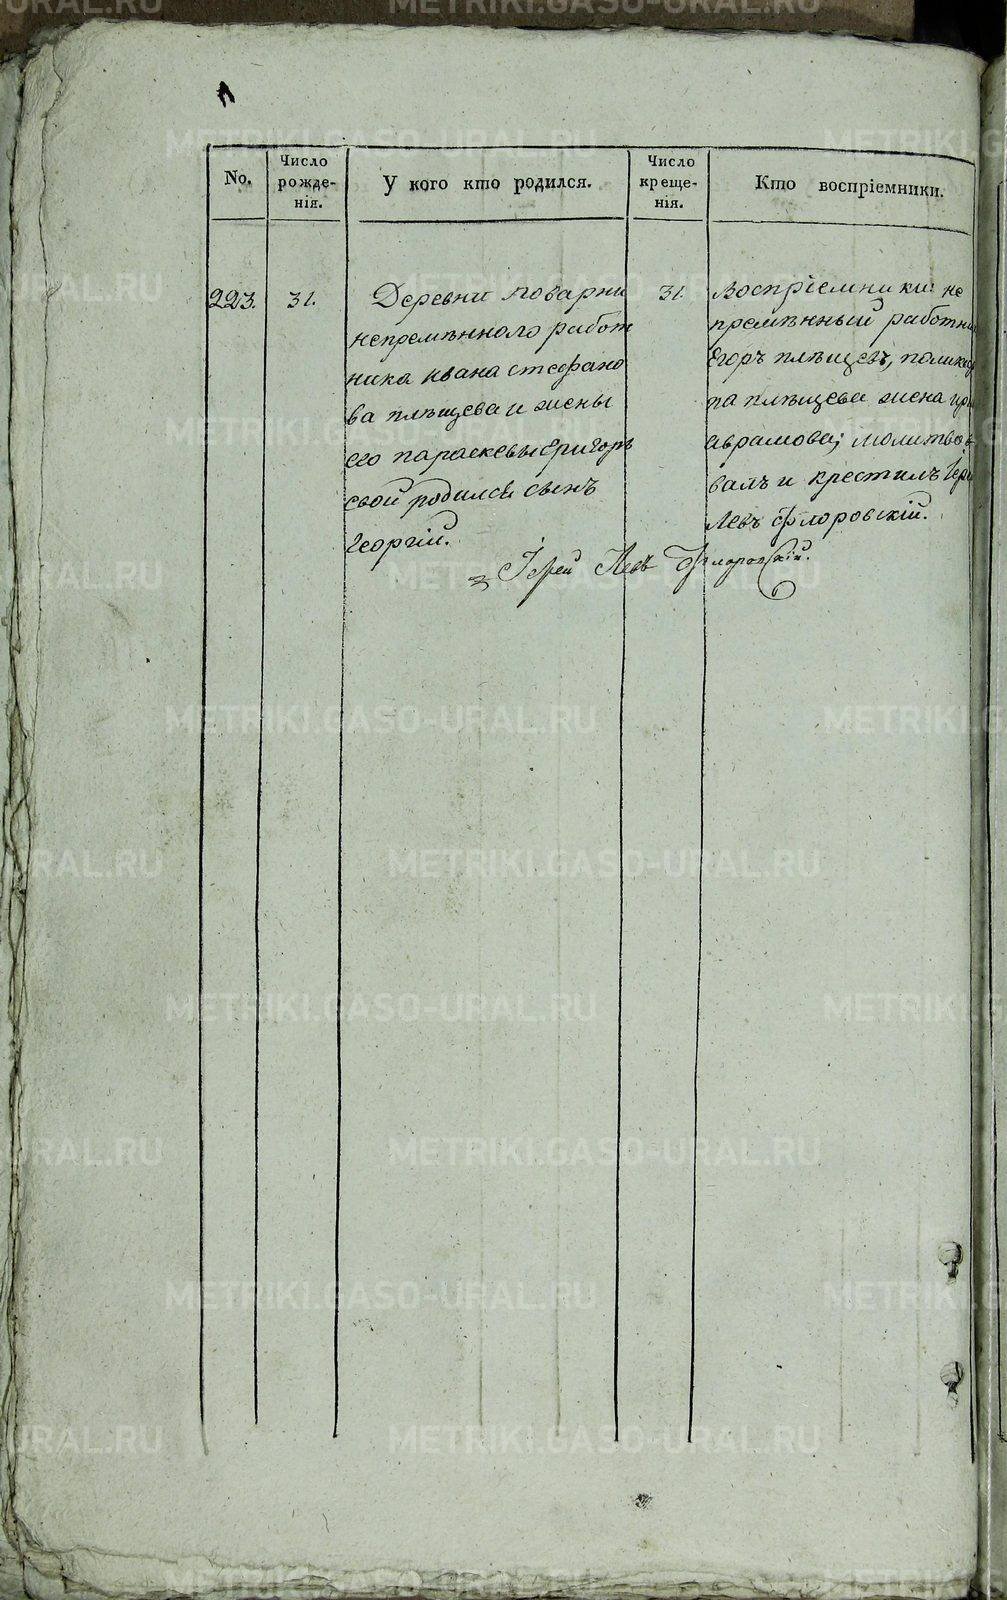 No.
Число рожде-нія.
У кого кто родился.
Число креще-нія.
Кто воспріемники.
223.
31.
Деревни поварни
непремѣннаго работ
ника ивана стефано
ва плѣщева и жены
его параскевы григорь
евой родился сынъ
георгій.
31.
Воспріемники: не
премѣнный работни
Егоръ плѣщевъ, поликар
па плѣщева жена ири
аврамова; молитвов
валъ и крестилъ Іерей
Левъ флоровскій.
Іерей Левъ Флоровскій.
METRIKI.GASO-URAL.RU